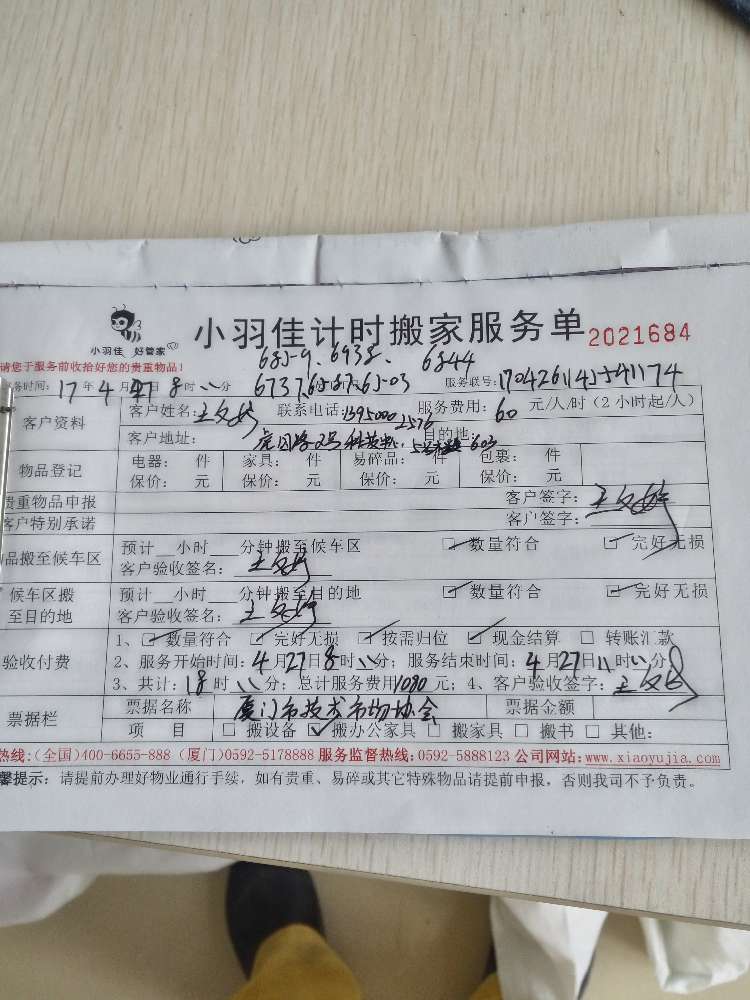 小羽佳 好管家
小羽佳计时搬家服务单 2021684
685-9. 6938. 6844
请您于服务前收拾好您的贵重物品!
时间: 17年4月27日8时 分 6737. 服务联号: 1704261145541174
客户资料 客户姓名: 联系电话: 服务费用: 60 元/人/时(2小时起/人)
客户地址: 虎园路 号 目的地: 603
物品登记 电器: 件 家具: 件 易碎品: 件 包裹: 件
保价: 元 保价: 元 保价: 元 保价: 元
贵重物品申报 客户签字:
客户特别承诺 客户签字:
品搬至候车区 预计__小时__分钟搬至候车区 ☑数量符合 ☑完好无损
客户验收签名:
候车区搬至目的地 预计__小时__分钟搬至目的地 ☑数量符合 ☑完好无损
客户验收签名:
验收付费 1、☑数量符合 ☑完好无损 ☑按需归位 ☑现金结算 □转账汇款
2、服务开始时间: 4月27日8时 分; 服务结束时间: 4月27日11时 分
3、共计: 18时 分; 总计服务费用1080元; 4、客户验收签字:
票据栏 票据名称 厦门市技术市场协会 票据金额
项 目 □搬设备 ☑搬办公家具 □搬家具 □搬书 □其他:
热线:(全国)400-6655-888 (厦门)0592-5178888 服务监督热线:0592-5888123 公司网站:www.xiaoyujia.com
馨提示: 请提前办理好物业通行手续,如有贵重、易碎或其它特殊物品请提前申报,否则我司不予负责。